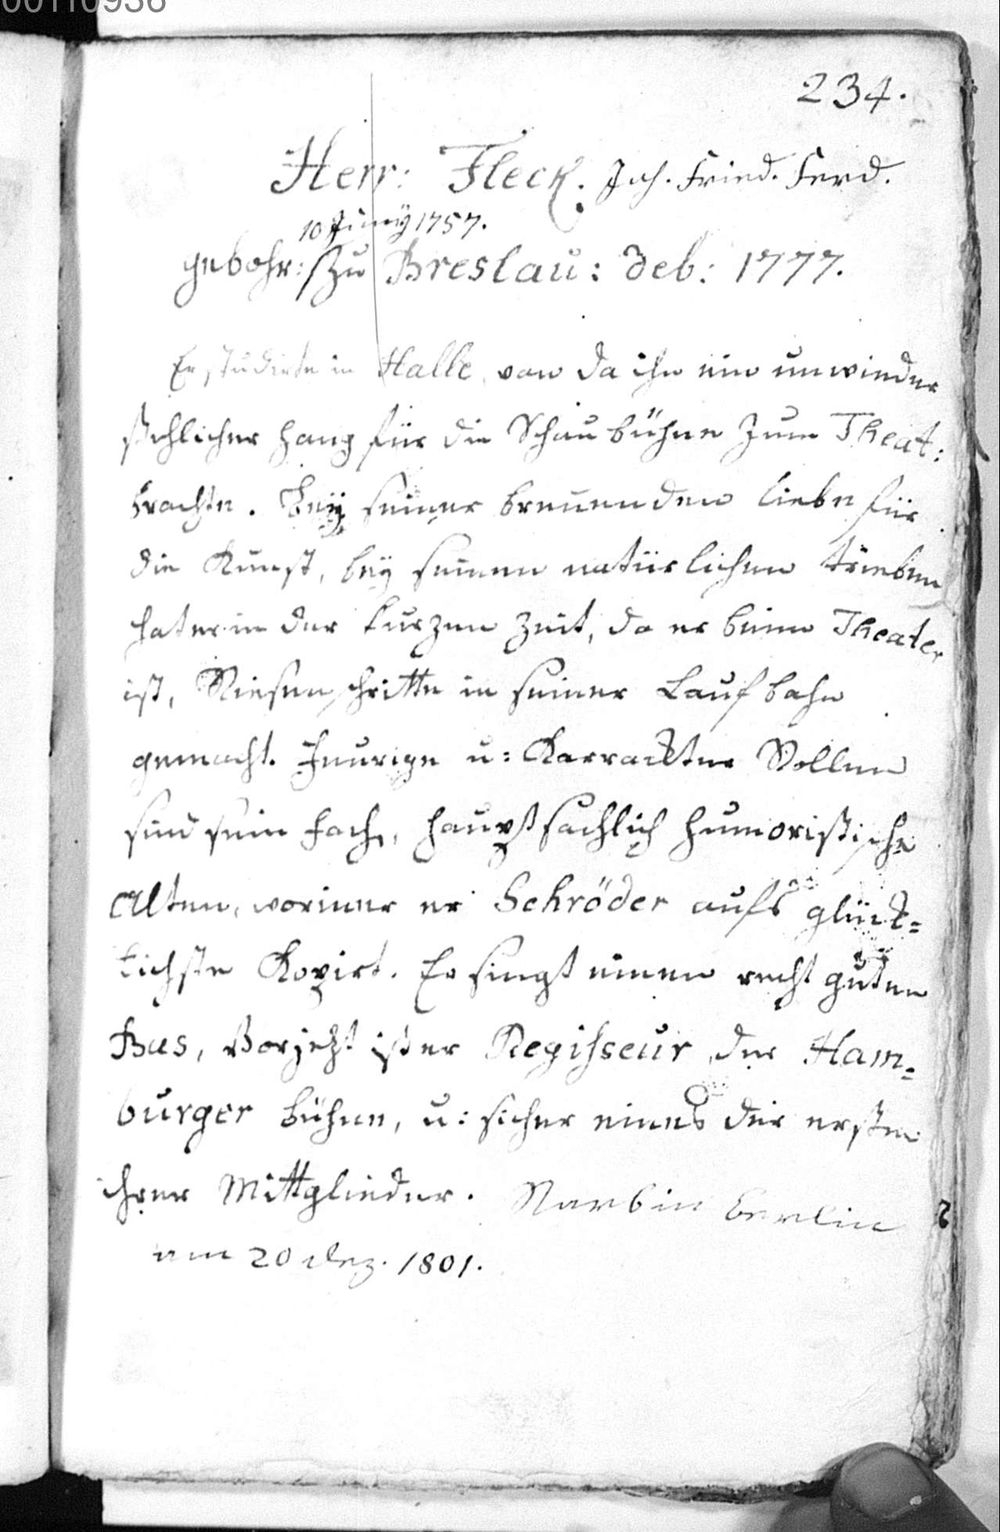 00110936
234.
Herr: Fleck. Joh. Fried. Ferd.
10 Juny 1757.
gebohr: zu Breslau: deb: 1777.
Er studirte in Halle, von da ihn ein unwieder
stehlicher Hang für die Schaubühne zum Theat:
brachte. Bey seiner brennenden Liebe für
die Kunst, bey seinen natürlichen trieben
hat er in der kurzen Zeit, da er beim Theater
ist, Riesenschritte in seiner Laufbahn
gemacht. Feurige u: Karrackter Rollen
sind sein Fach, hauptsächlich humoristische
Alten, worinner er Schröder aufs glück=
lichste Kopirt. Er singt einen recht guten
Bas, Vorjezt ist er Regisseur der Ham=
burger Bühne, u: sicher eines der ersten
ihrer Mittglieder. Starb in Berlin
am 20 dez. 1801.